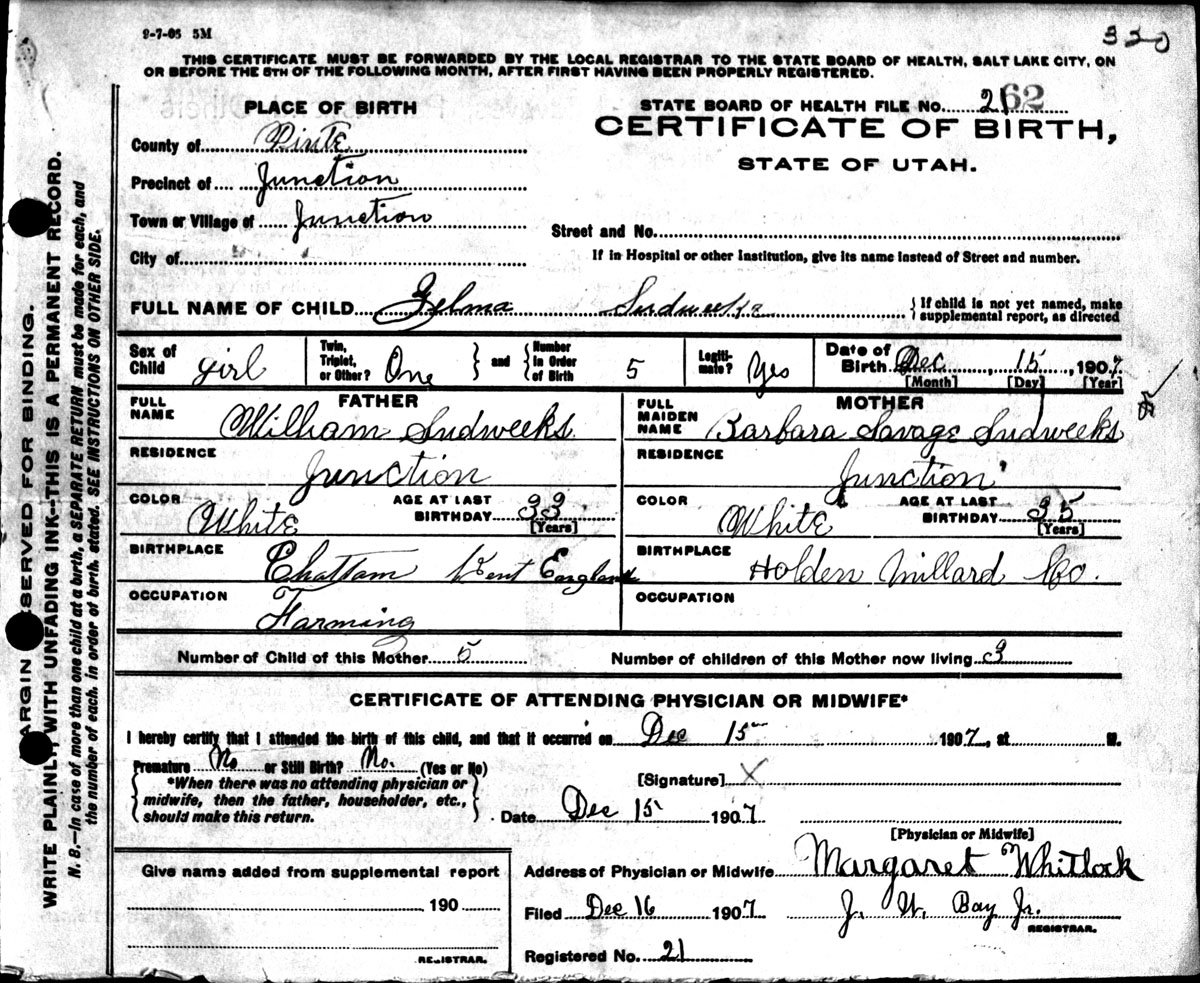 9-7-05 5M
320
THIS CERTIFICATE MUST BE FORWARDED BY THE LOCAL REGISTRAR TO THE STATE BOARD OF HEALTH, SALT LAKE CITY, ON
OR BEFORE THE 5TH OF THE FOLLOWING MONTH, AFTER FIRST HAVING BEEN PROPERLY REGISTERED.
MARGIN RESERVED FOR BINDING.
WRITE PLAINLY WITH UNFADING INK--THIS IS A PERMANENT RECORD.
N. B.—In case of more than one child at a birth, a SEPARATE RETURN must be made for each, and
the number of each, in order of birth, stated. SEE INSTRUCTIONS ON OTHER SIDE.
PLACE OF BIRTH
County of Piute
Precinct of Junction
Town or Village of Junction
City of
STATE BOARD OF HEALTH FILE NO. 262
CERTIFICATE OF BIRTH,
STATE OF UTAH.
Street and No.
If in Hospital or other Institution, give its name instead of Street and number.
FULL NAME OF CHILD Zelma Sudweeks
{If child is not yet named, make
supplemental report, as directed
Sex of Child girl
Twin, Triplet, or Other? One } and { Number in Order of Birth 5
Legitimate? Yes
Date of Birth Dec 15, 1907
[Month] [Day] [Year]
FATHER
FULL NAME William Sudweeks
RESIDENCE Junction
COLOR White AGE AT LAST BIRTHDAY 33 [Years]
BIRTHPLACE Chattam Kent England
OCCUPATION Farming
MOTHER
FULL MAIDEN NAME Barbara Savage Sudweeks
RESIDENCE Junction
COLOR White AGE AT LAST BIRTHDAY 35 [Years]
BIRTHPLACE Holden Millard Co.
OCCUPATION
Number of Child of this Mother 5 Number of children of this Mother now living 3
CERTIFICATE OF ATTENDING PHYSICIAN OR MIDWIFE*
I hereby certify that I attended the birth of this child, and that it occurred on Dec 15 1907, at M.
Premature No or Still Birth? No. (Yes or No)
{*When there was no attending physician or
midwife, then the father, householder, etc.,
should make this return.}
[Signature] X
Date Dec 15 1907
[Physician or Midwife]
Address of Physician or Midwife Margaret Whitlock
Filed Dec 16 1907 J. W. Bay Jr.
REGISTRAR.
Registered No. 21
Give name added from supplemental report
190
REGISTRAR.